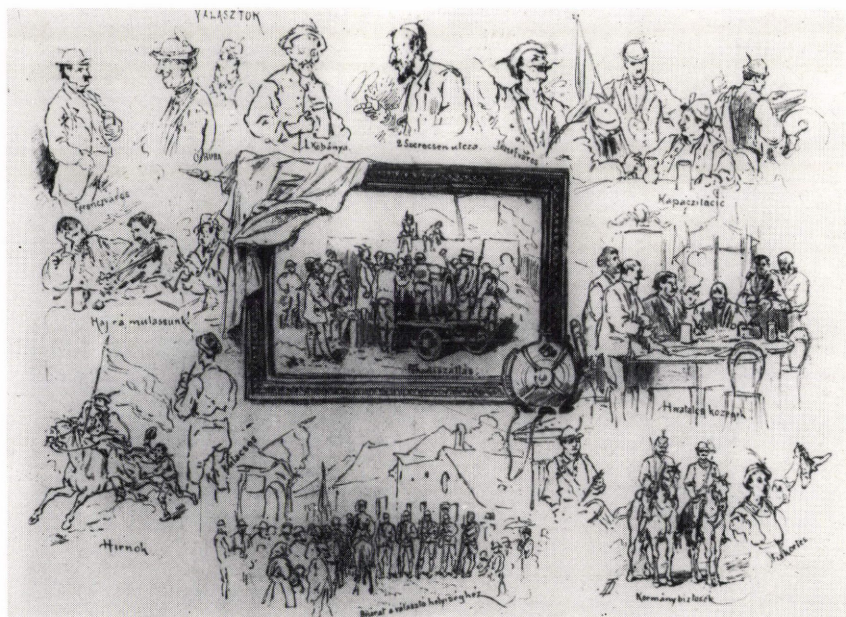 VÁLASZTÓK
Ferenczváros
Ó BUDA
1. Kőbánya
2. Szerecsen utcza
Józsefváros
Kapaczitáczió
Hej rá mulassunk
Hivatalos közegek
Hirnök
Bejárat a választó helyiséghez
Kormánybiztosok
A kortes